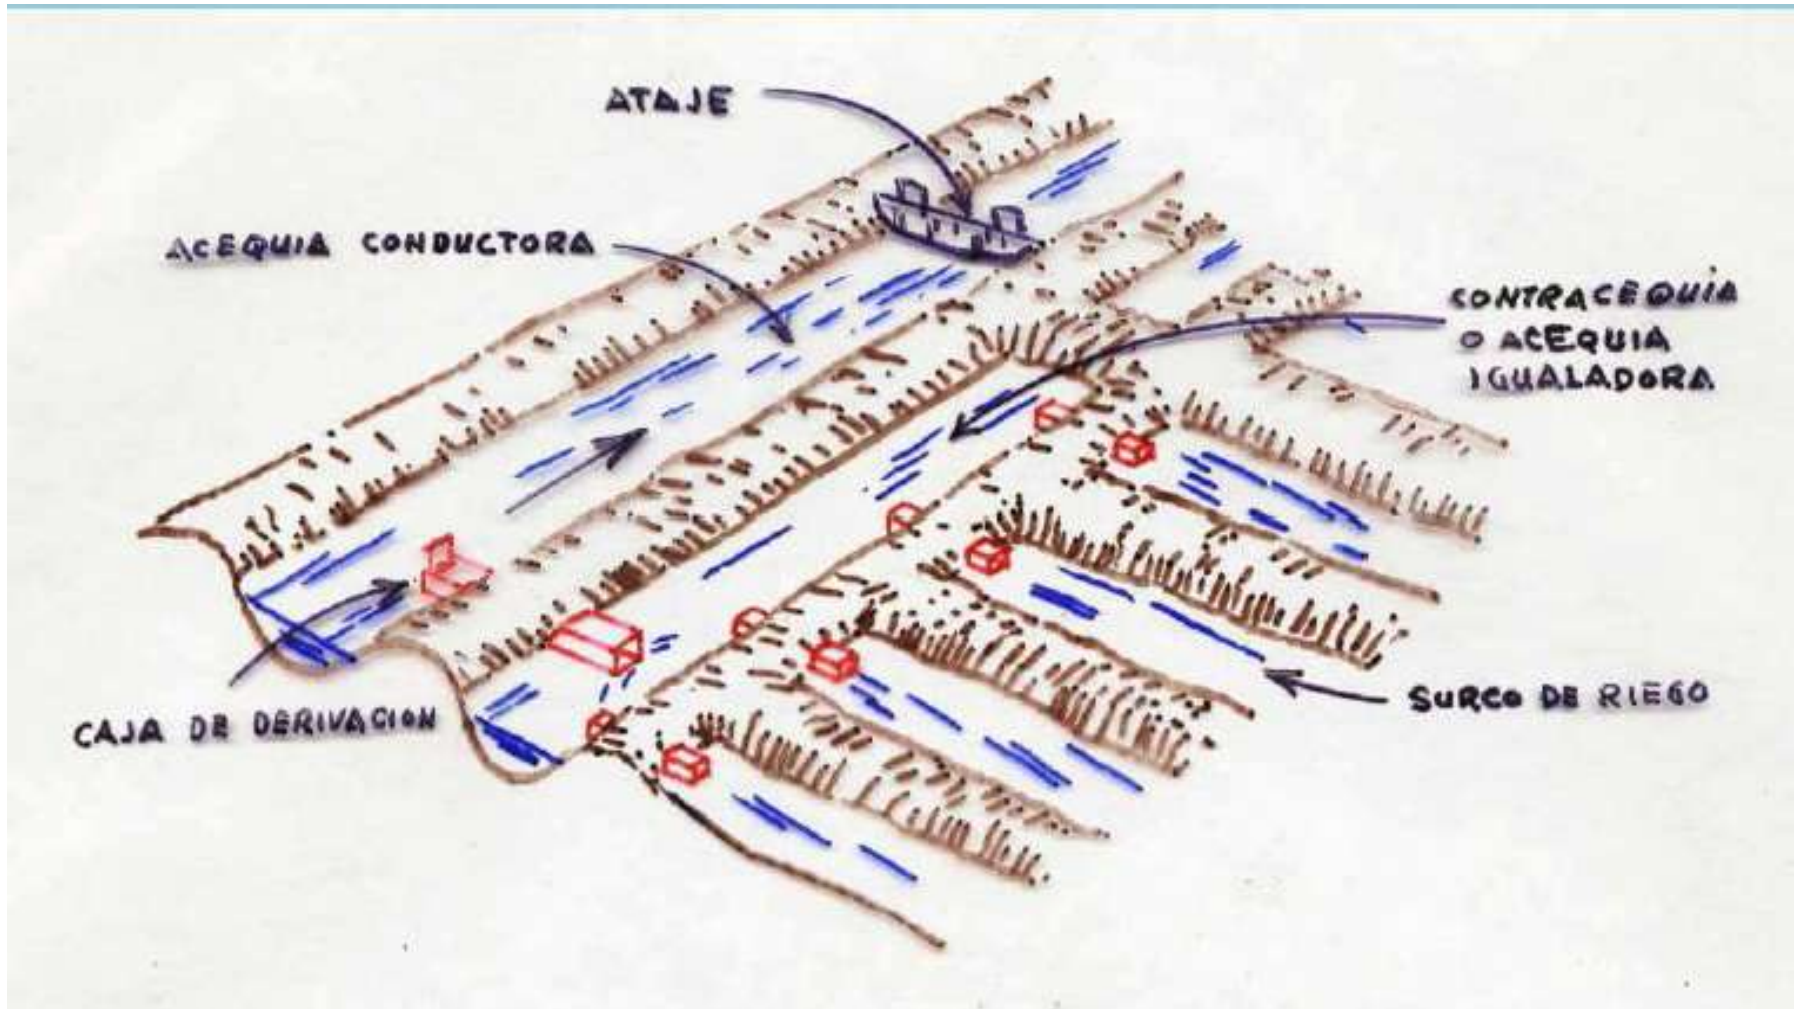 ATAJE
ACEQUIA CONDUCTORA
CONTRACEQUIA
O ACEQUIA
IGUALADORA
SURCO DE RIEGO
CAJA DE DERIVACION